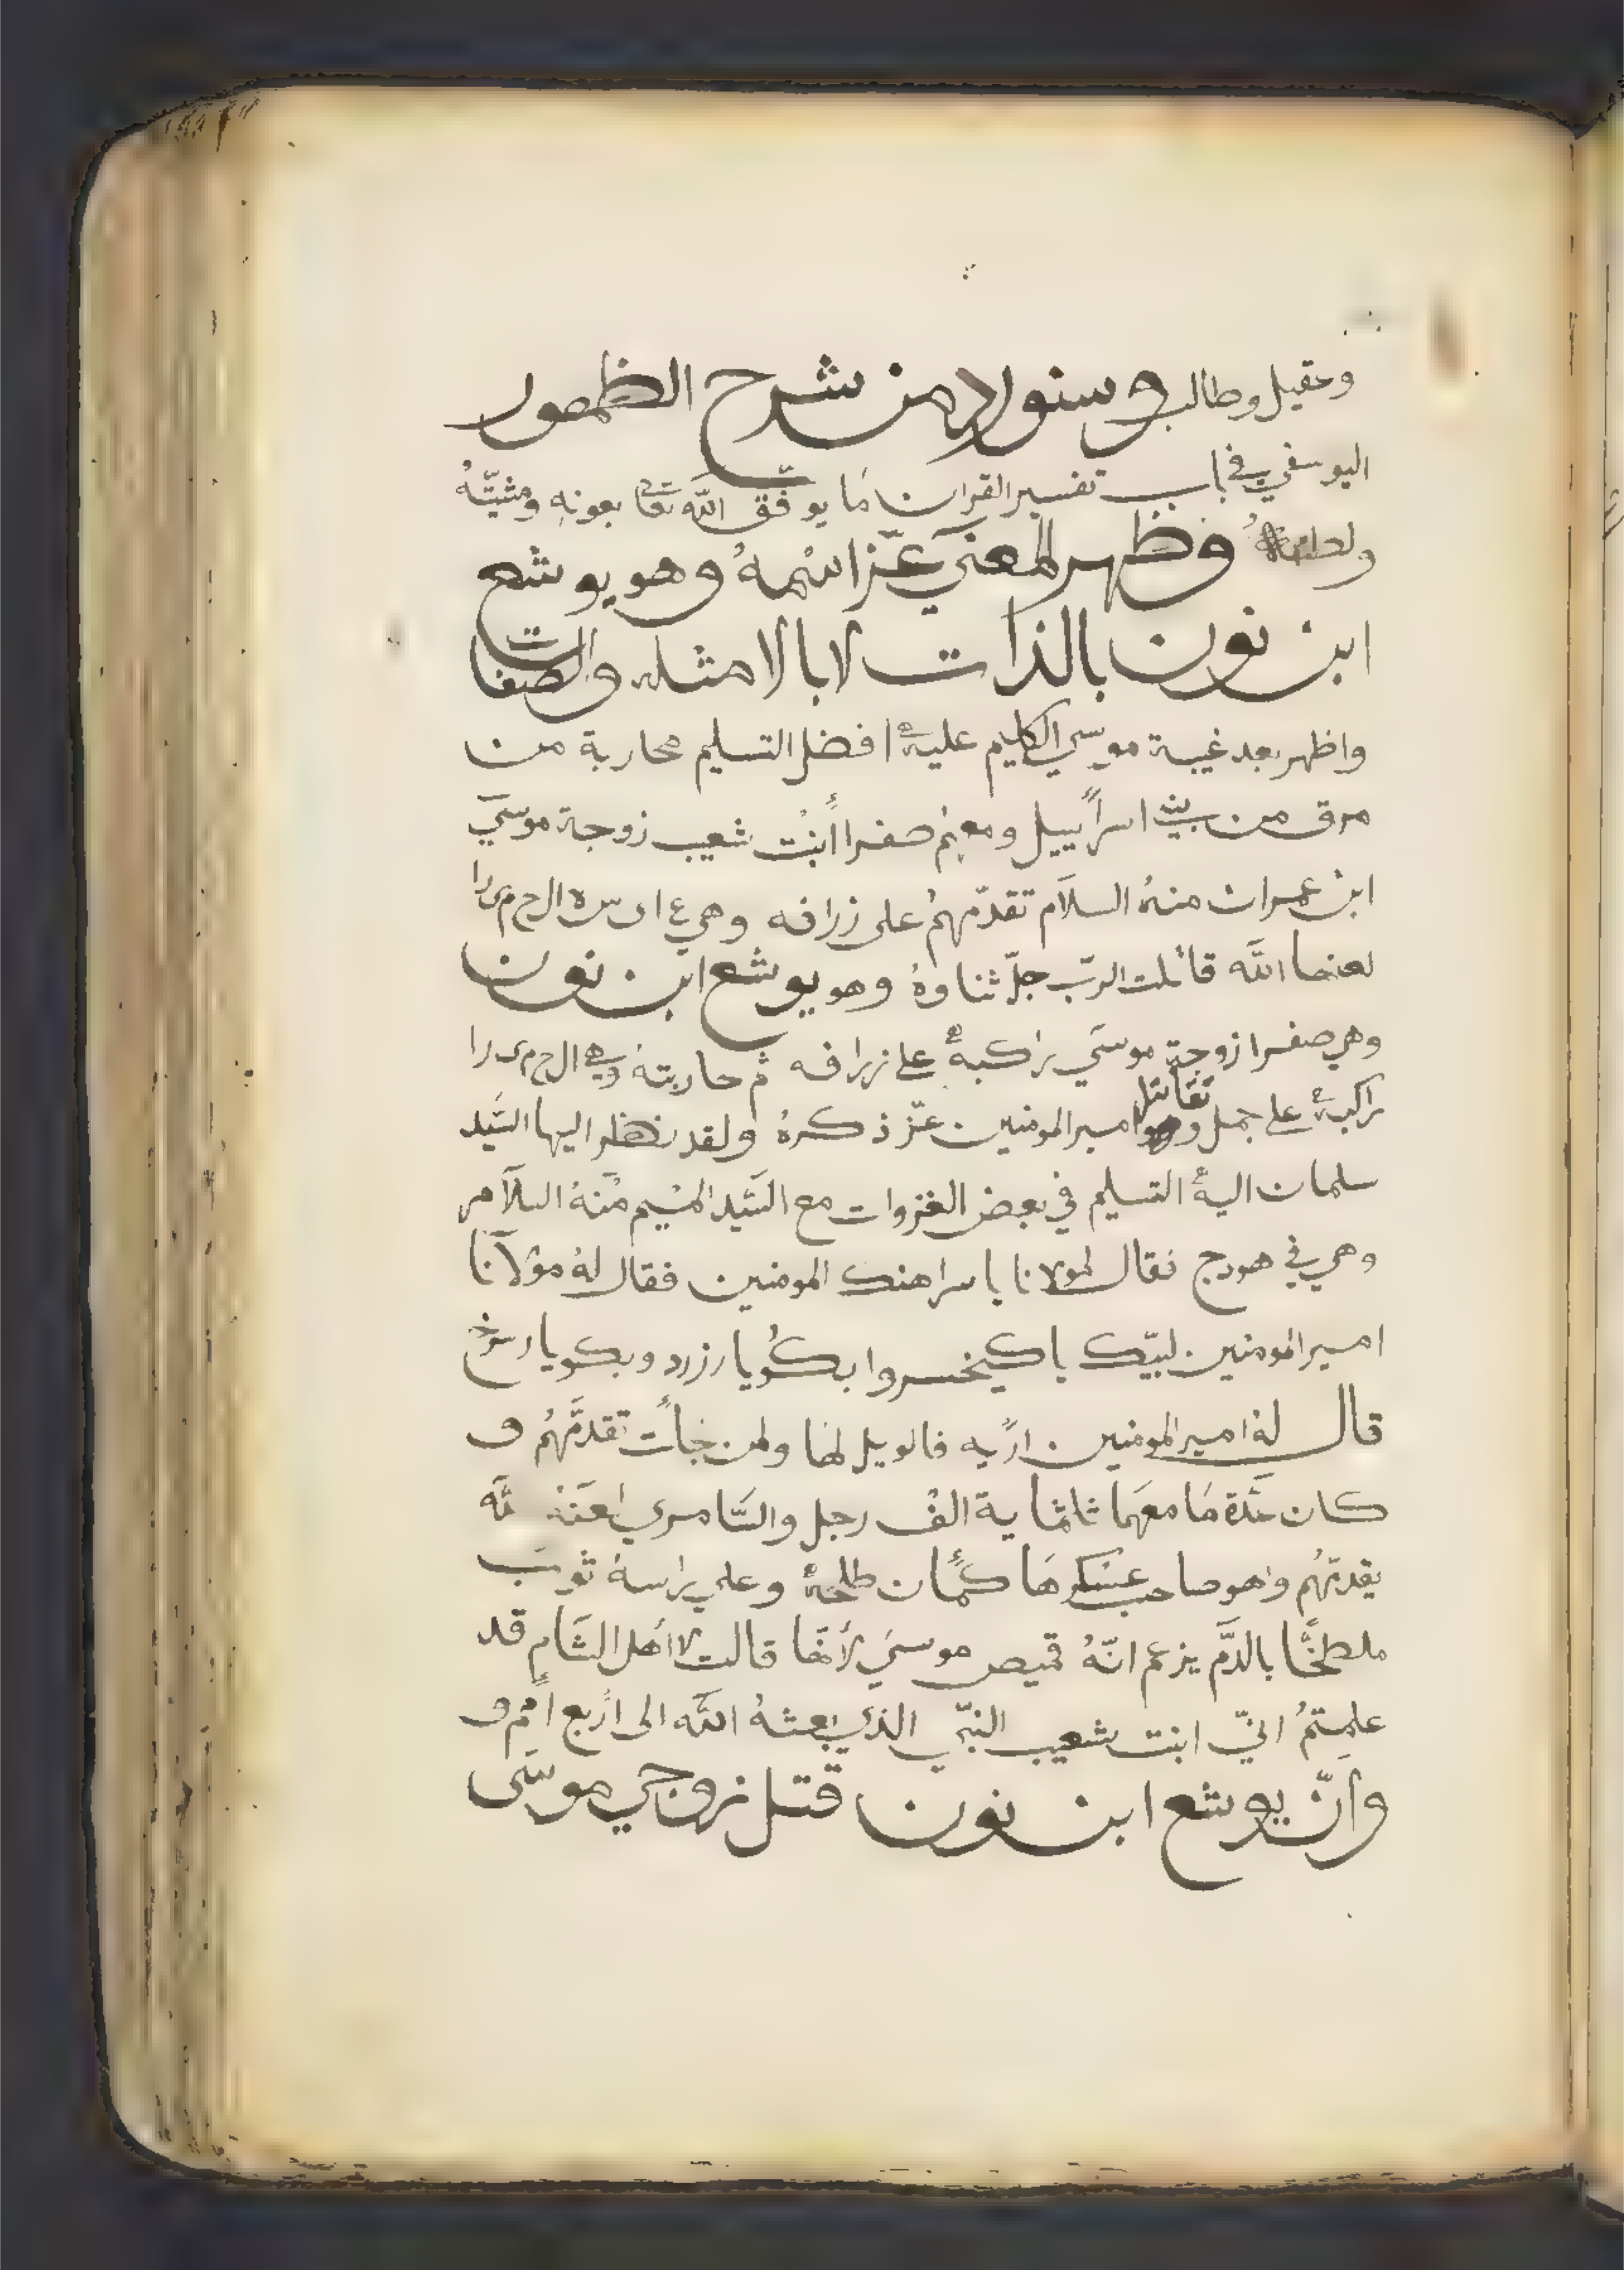 وعقيل وطالب وسنورد من شرح الظهور
اليوسفي في باب تفسير القران مَا يوفّق اللّه تعا بعونهِ ومشيّتهُ
وظهر المعنيَ عزّ اسْمهُ وهو يوشع
ابن نون بالذات لا بالامثله والصفات
واظهر بعد غيبة موسي الكليم عليهٔ افضل التسليم محاربة من
مرق من بني اسراًييل ومعهم صفرا أبنْت شعيب زوجة موسيَ
ابن عمران منهُ السلاَم تقدّمهمُ على زرافه وهي ع ا ى س ه ال ح م ى را
لعنها اللَّه قاتلت الربّ جلّ ثناوهُ وهو يوشع ابن نون
وهي صفرا زوجة موسَي راكبةٔ على زرافه ثم حاربتهُ وهي ال ح م ى را
راكبةٔ على جمل تقاتل امير المومنين عزّ ذكرهُ ولقد نظر اليها السَّيد
سلمان اليهٔ التسليم في بعض الغزوات مع السَّيد الميْم منْهُ السلاَم
وهي في هودج فقال لمولانا ياسراهنك المومنين فقال لهُ موْلاَنا
امير المومنين لبّيك ياكيخسروا بكُويا رزرد وبكويا رسرخ
قال لهُ امير المومنين ارًيه فالويل لها ولمن جأت تقدَّمهُم و
كان عدّة مَا معهَا ثلثماية الفْ رجل والسَّامري لعَنهُ اللَّه
يقدّمهُم وهو صاحب عسْكرهَا كمأن طلحهٔ وعلي راسهُ ثوبَ
ملطخًا بالدَّم يزعم انّهُ قميص موسيَ لأنهَا قالت لااهْل الشَام قد
علمتمُ انيّ ابنت شعيب النبّي الذي بعثهُ اللَّه الى أربع أمم و
وأنّ يوشع ابن نون قتل زوجي موسَى